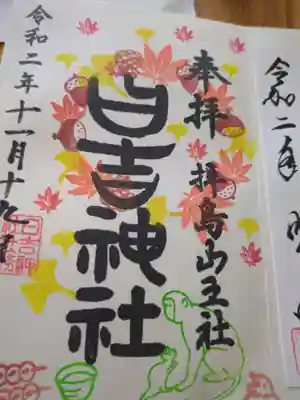 奉拝
拝島山王社
日吉神社
令和二年十一月十九日
令和二年